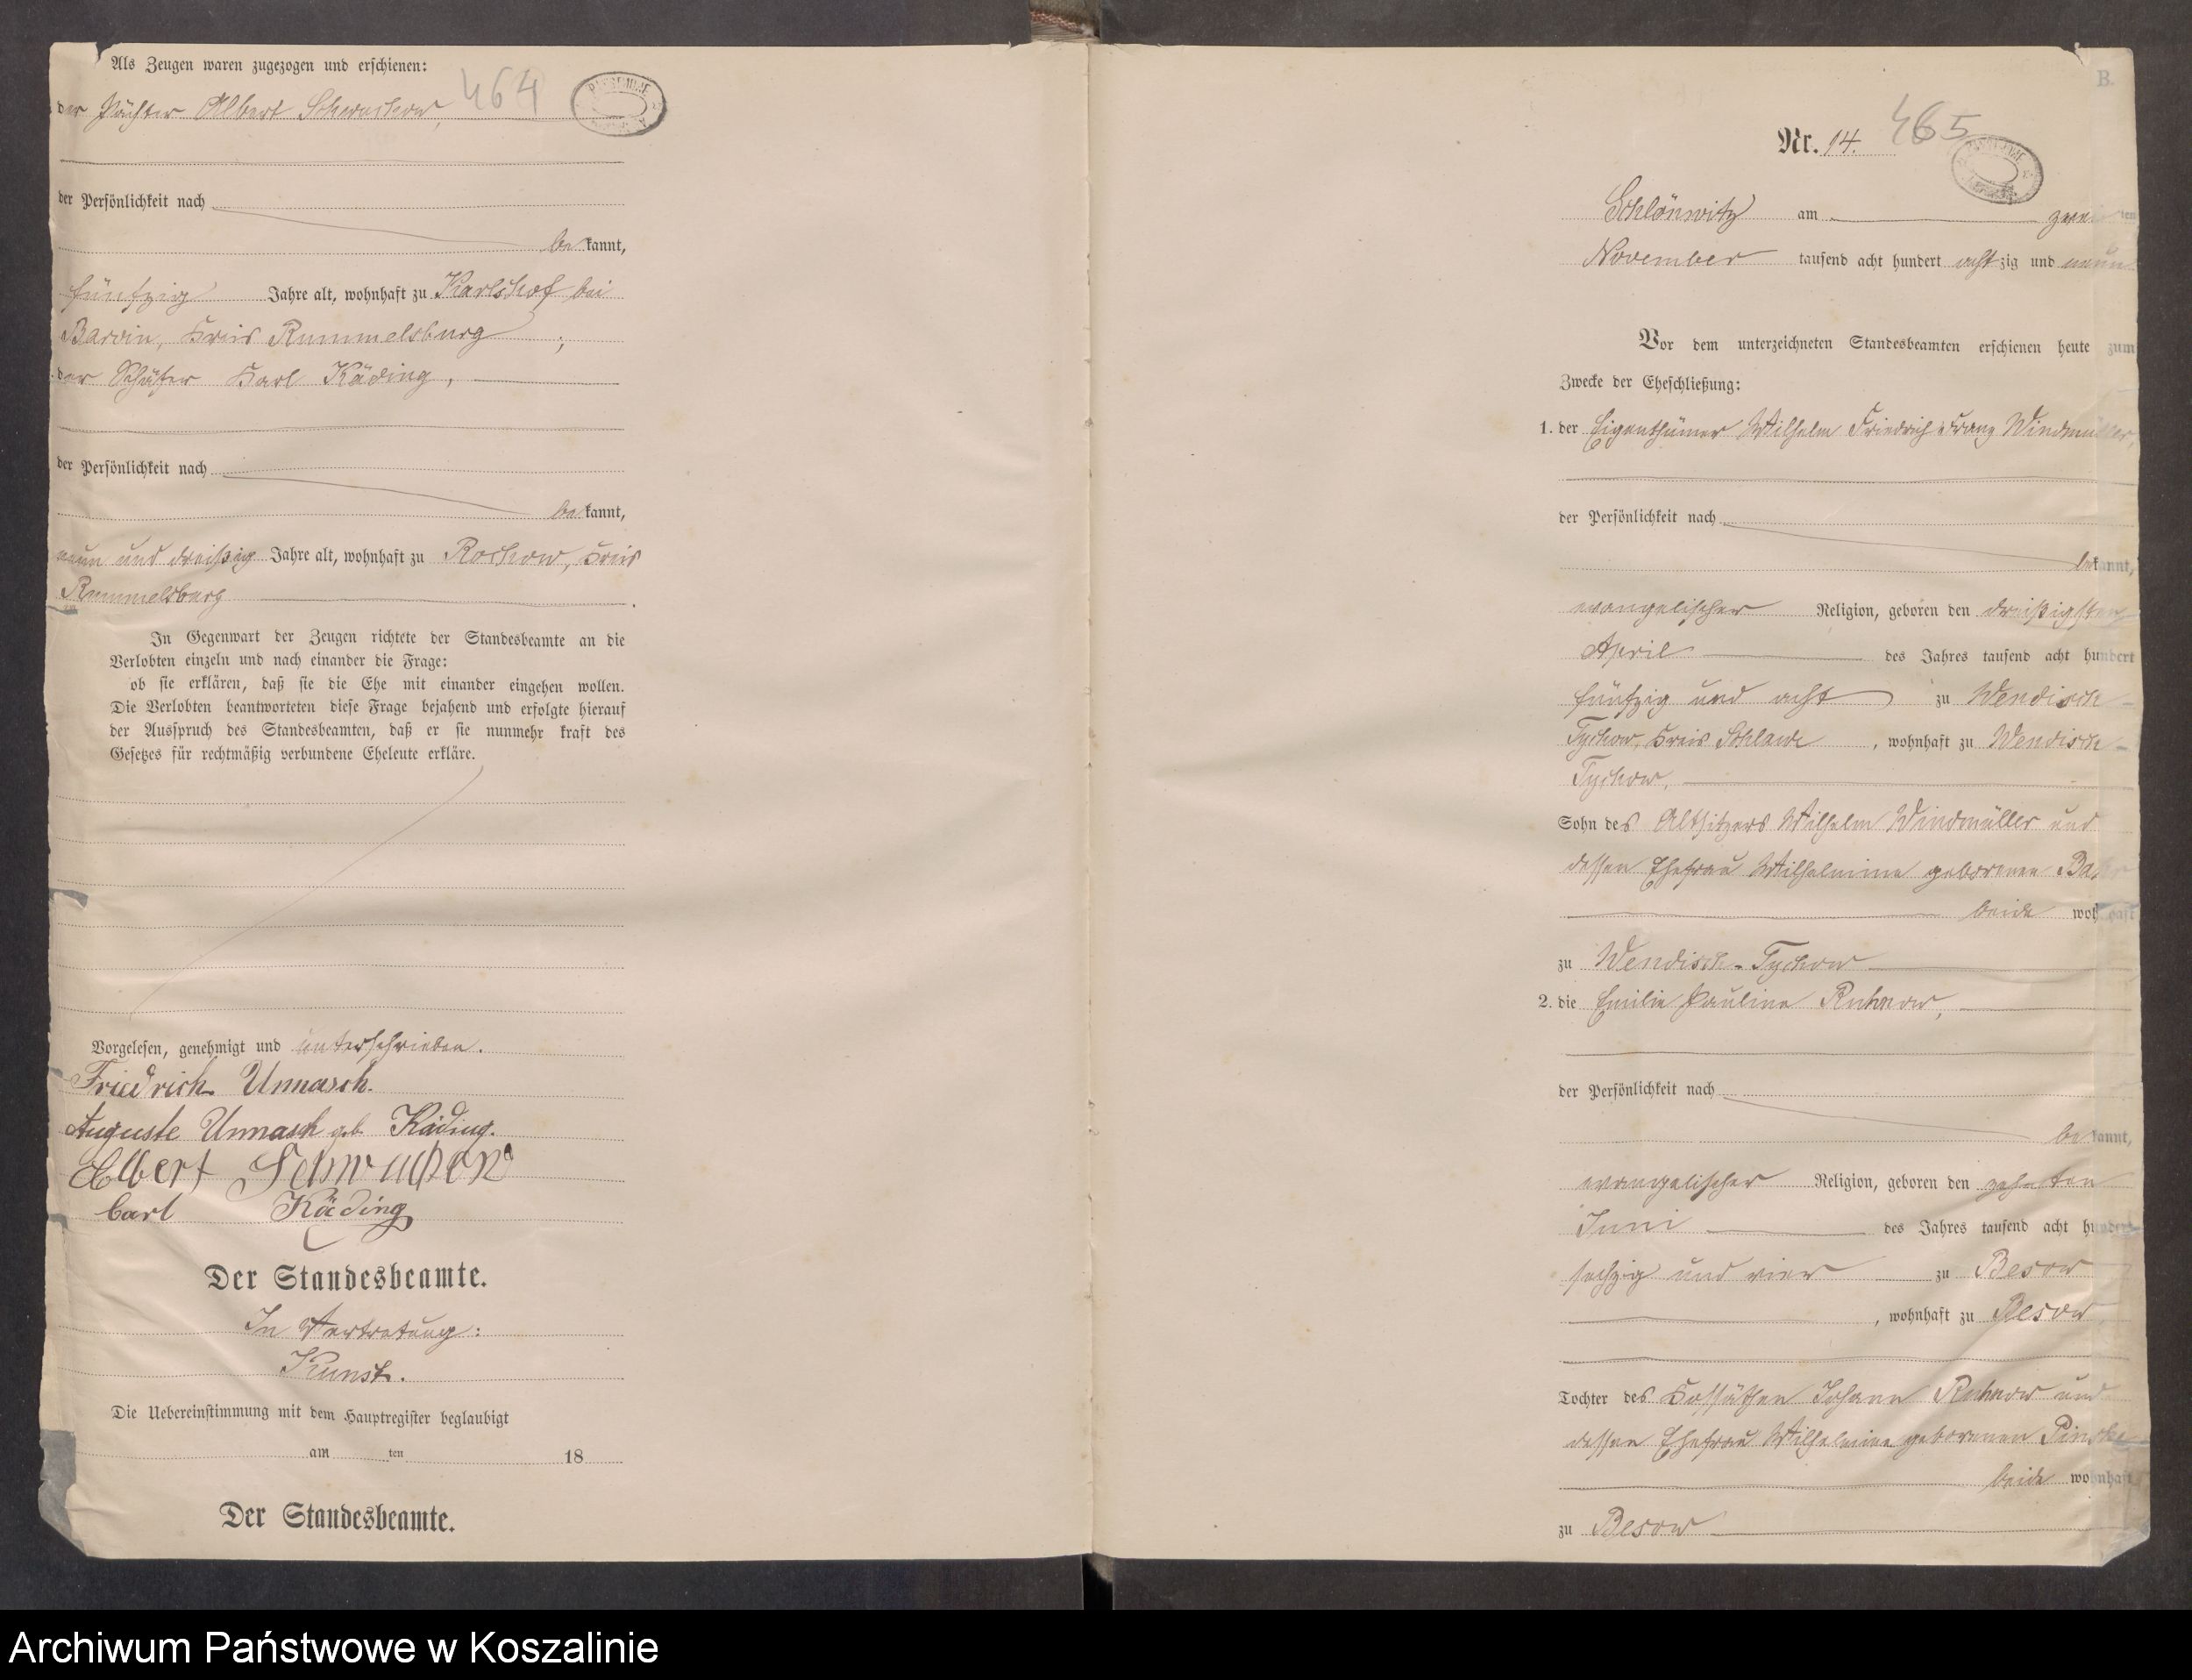 Als Zeugen waren zugezogen und erschienen:
464
der Pächter Albert Schwuchow,
der Persönlichkeit nach
be kannt,
fünfzig Jahre alt, wohnhaft zu Karlshof bei
Barvin, Kreis Rummelsburg ;
der Schäfer Karl Käding,
der Persönlichkeit nach
be kannt,
neun und dreißig Jahre alt, wohnhaft zu Rochow, Kreis
Rummelsburg .
In Gegenwart der Zeugen richtete der Standesbeamte an die
Verlobten einzeln und nach einander die Frage:
ob sie erklären, daß sie die Ehe mit einander eingehen wollen.
Die Verlobten beantworteten diese Frage bejahend und erfolgte hierauf
der Ausspruch des Standesbeamten, daß er sie nunmehr kraft des
Gesetzes für rechtmäßig verbundene Eheleute erkläre.
Vorgelesen, genehmigt und unterschrieben.
Friedrich Unnasch.
Auguste Unnasch geb. Käding.
Albert Schwuchow
Carl Käding
Der Standesbeamte.
In Vertretung:
Kunst.
Die Uebereinstimmung mit dem Hauptregister beglaubigt
am ten 18
Der Standesbeamte.
B.
Nr. 14. 465
Schlönwitz am zweiten
November tausend acht hundert achtzig und neun
Vor dem unterzeichneten Standesbeamten erschienen heute zum
Zwecke der Eheschließung:
1. der Eigenthümer Wilhelm Friedrich Franz Windmüller,
der Persönlichkeit nach
bekannt,
evangelischer Religion, geboren den dreißigsten
April des Jahres tausend acht hundert
fünfzig und acht zu Wendisch-
Tychow, Kreis Schlawe , wohnhaft zu Wendisch-
Tychow,
Sohn des Altsitzers Wilhelm Windmüller und
dessen Ehefrau Wilhelmine geborenen
beide wohnhaft
zu Wendisch-Tychow
2. die Emilie Pauline Ruhnow,
der Persönlichkeit nach
be kannt,
evangelischer Religion, geboren den zehnten
Juni des Jahres tausend acht hundert
sechzig und vier zu Besow
, wohnhaft zu Besow,
Tochter des Kossäthen Johann Ruhnow und
dessen Ehefrau Wilhelmine geborenen Pinske
beide wohnhaft
zu Besow
Archiwum Państwowe w Koszalinie